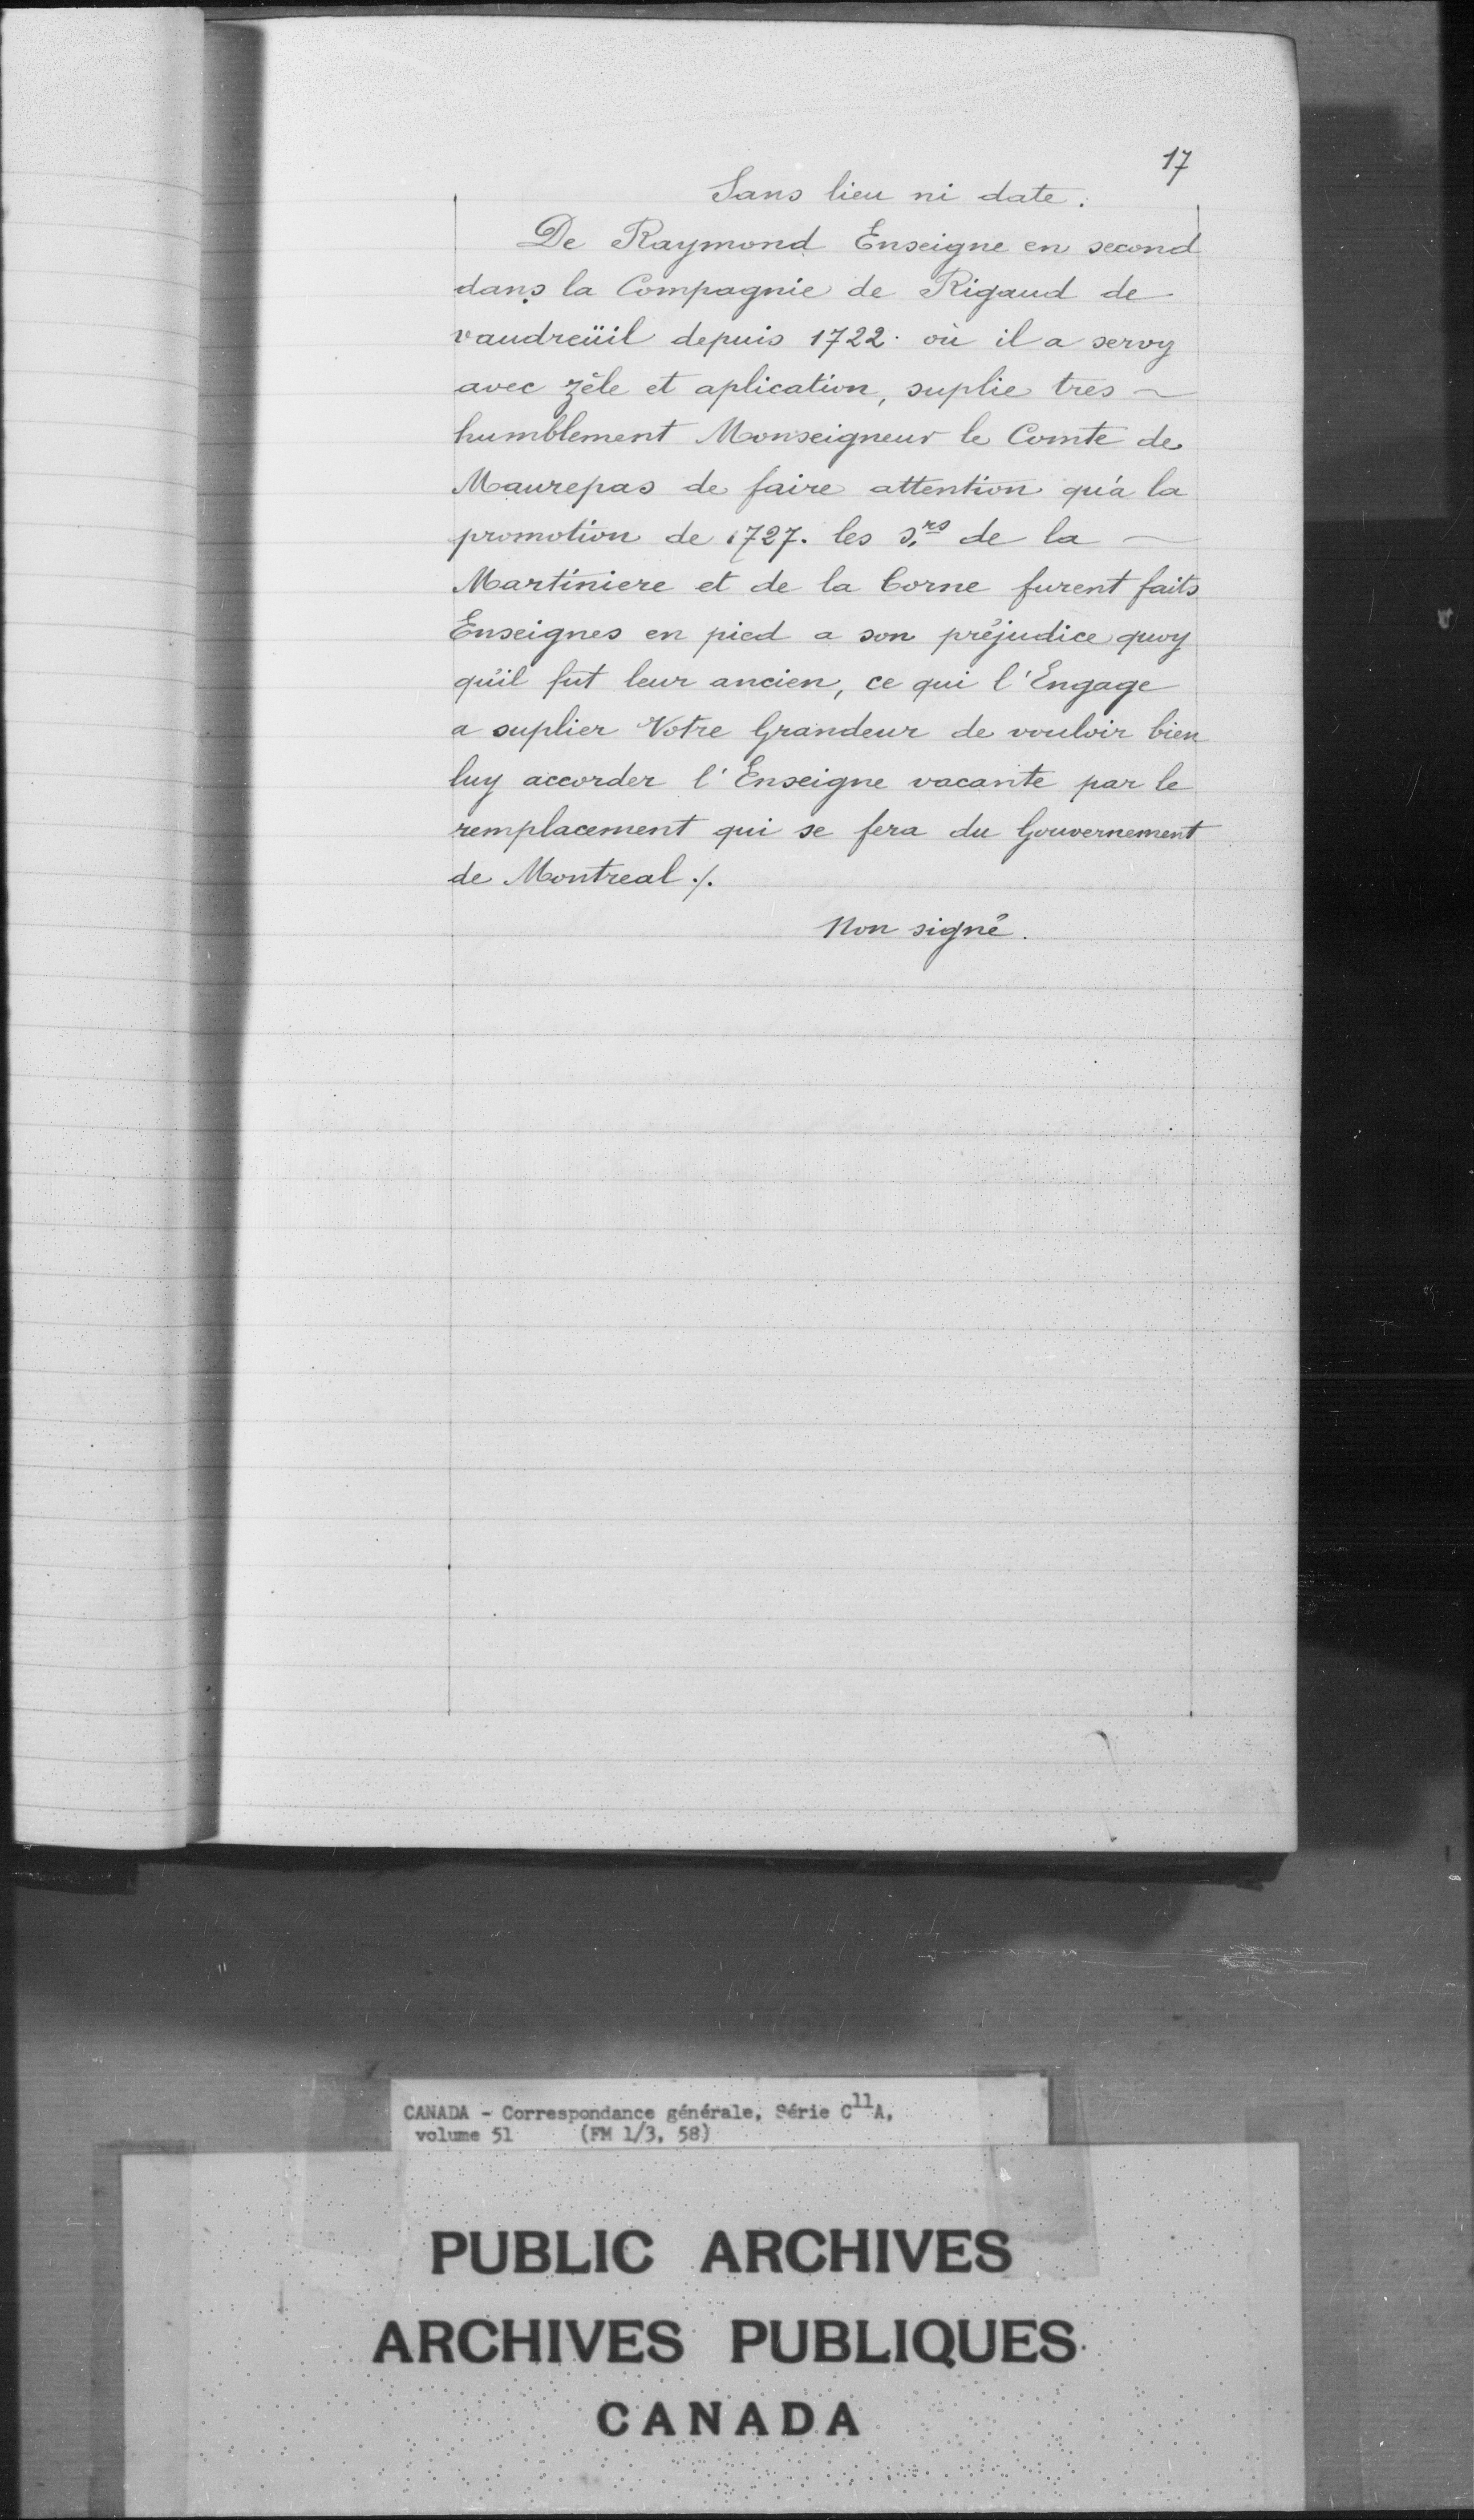 17
Sans lieu ni date.
De Raymond Enseigne en second
dans la Compagnie de Rigaud de
vaudreüil depuis 1722. où il a servy
avec zêle et aplication, suplie tres ~
humblement Monseigneur le Comte de
Maurepas de faire attention qu'a la
promotion de 1727. les S.rs de la ~
Martiniere et de la Corne furent faits
Enseignes en pied a son préjudice quoy
qu'il fut leur ancien, ce qui l'Engage
a suplier Votre Grandeur de vouloir bien
luy accorder l'Enseigne vacante par le
remplacement qui se fera du Gouvernement
de Montreal ./.
Non signé.
CANADA - Correspondance générale, Série C11A,
volume 51 (FM 1/3, 58)
PUBLIC ARCHIVES
ARCHIVES PUBLIQUES
CANADA